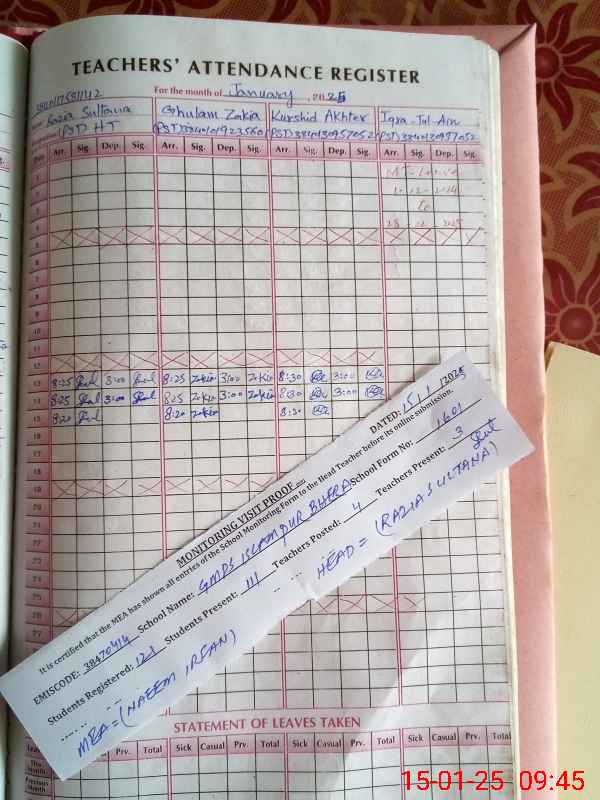 TEACHERS' ATTENDANCE REGISTER
For the month of January, 2025
Razia Sultana Ghulam Zakia Kurshid Akhter Iqra-Tul-Ain
PSD HT (PST) (PST) (PST)
Arr. Sig. Dep. Sig. Arr. Sig. Dep. Sig. Arr. Sig. Dep. Sig. Arr. Sig. Dep. Sig.
to
13 8:25 3:00 8:25 Zakia 3:00 Zakia 8:30 3:00
14 8:25 3:00 8:25 Zakia 3:00 Zakia 8:30 3:00
15 8:20 8:20 Zakia 8:30
MONITORING VISIT PROOF
DATED: 15/1/2025
It is certified that the MEA has shown all entries of the School Monitoring Form to the Head Teacher before its online submission.
EMISCODE: School Name: GMPS ISLAMPUR BHERA School Form No: 1601
Students Registered: 121 Students Present: 111 Teachers Posted: 4 Teachers Present: 3
MEA = (NAEEM IRFAN) HEAD = (RAZIA SULTANA)
STATEMENT OF LEAVES TAKEN
Prv. Total Sick Casual Prv. Total Sick Casual Prv. Total Sick Casual Prv. Total
15-01-25 09:45